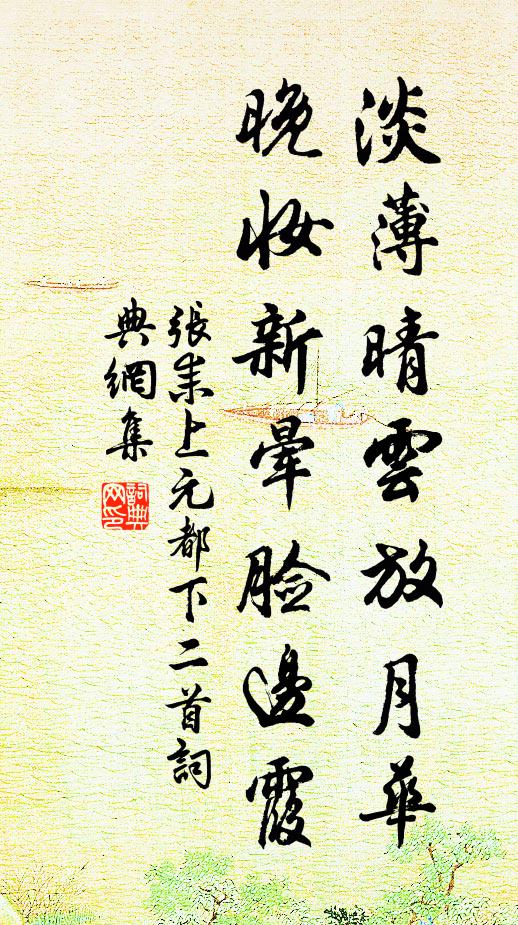 淡薄晴雲放月華
晚妝新暈臉邊霞
張耒上元都下二首詞
典網集
詞典网印